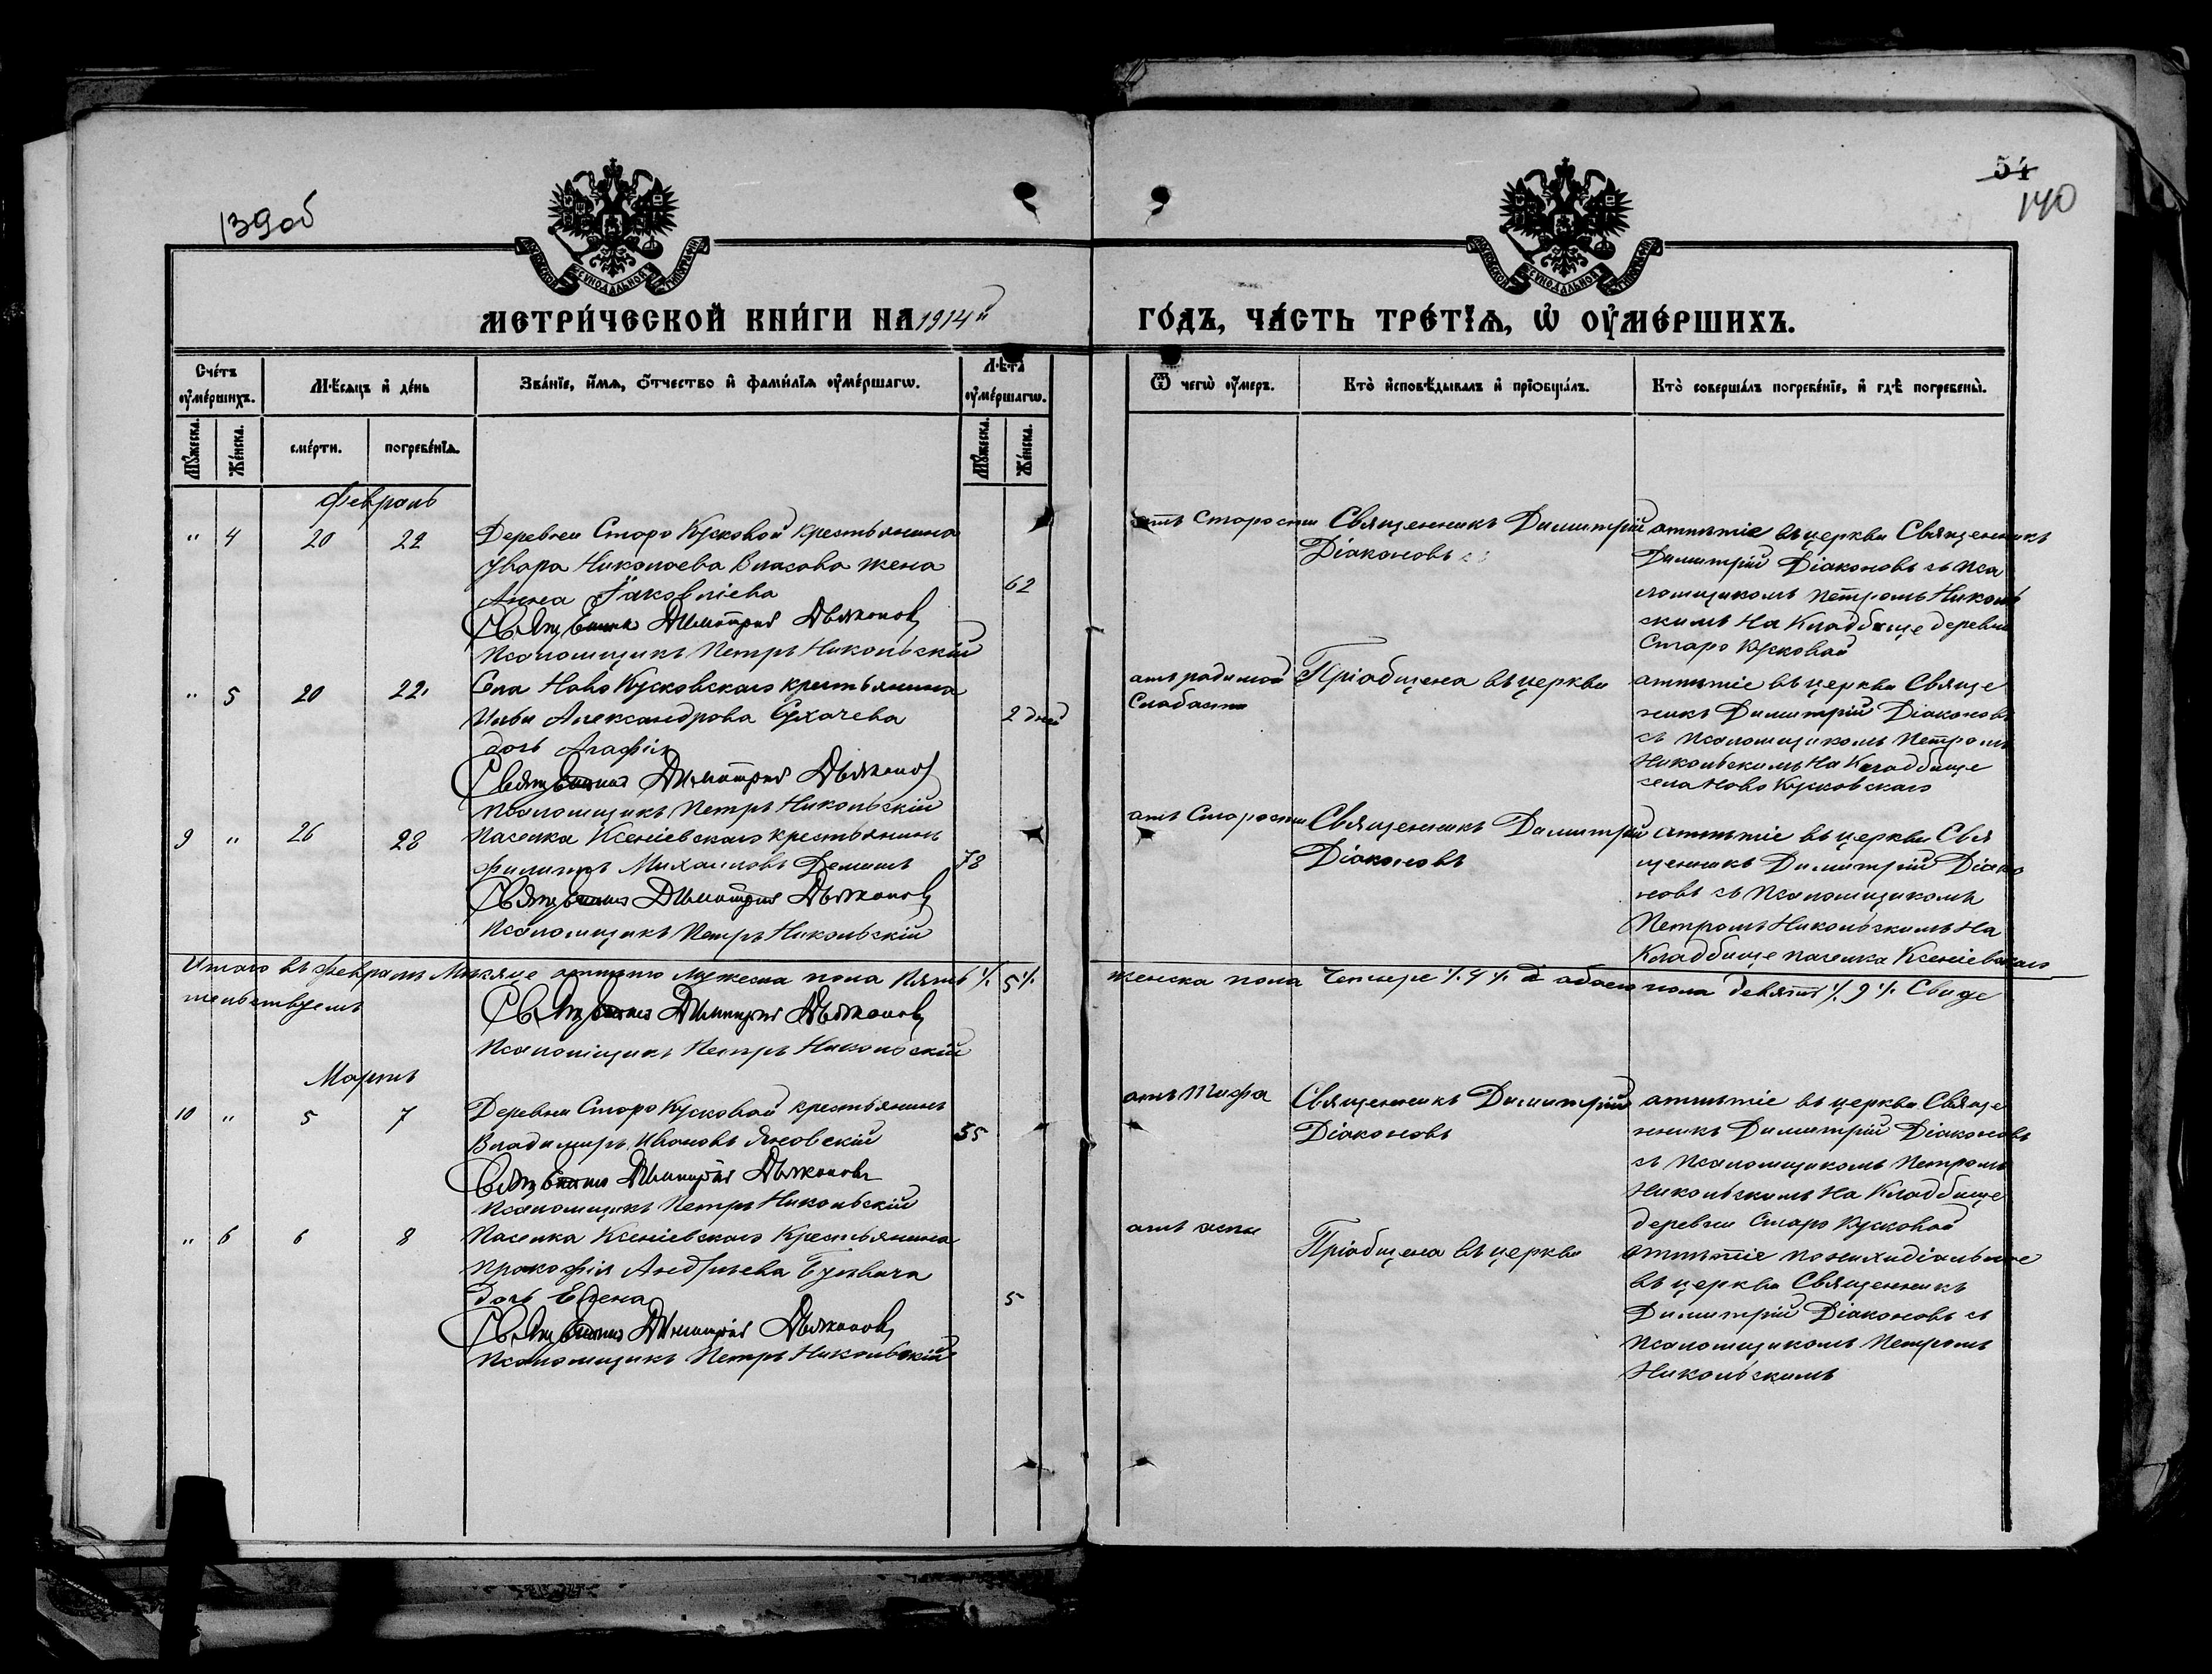 139об
54
140
МЕТРИ́ЧЕСКОЙ КНИ́ГИ НА 1914й
ГО́ДЪ, ЧА́СТЬ ТРЕ́ТЇѦ, Ѡ҆ ОУ҆МЕ́РШИХЪ.
Сче́тъ оу҆ме́ршихъ.
Мѣ́сяцъ и҆ де́нь
Зва́нїе, и҆́мѧ, ѻ҆́тчество и҆ фами́лїѧ оу҆ме́ршагѡ.
Лѣ́та оу҆ме́ршагѡ.
Ѿ чегѡ̀ оу҆́меръ.
Кто̀ и҆сповѣ́дывалъ и҆ прїѡбща́лъ.
Кто̀ соверша́лъ погребе́нїе, и҆ гдѣ̀ погребены̀.
Мꙋ́жеска.
Же́нска.
сме́рти.
погребе́нїѧ.
Мꙋ́жеска.
Же́нска.
Февраль
" 4 20 22
Деревни Старо Кусковой крестьянина
Увара Николаева Власова жена
Анна Іаковлева 62
Священникъ Димитрій Дьяконовъ
Псаломщикъ Петръ Никольскій
отъ старости
Священникъ Димитрій
Діаконовъ
отпѣтіе въ церкви Священникъ
Димитрій Діаконовъ съ пса
ломщикомъ Петромъ Николь
скимъ На Кладбище деревни
Старо Кусковой
" 5 20 22
Села Ново Кусковскаго крестьянина
Ильи Александрова Сухачева 2 дней
дочь Агафія
Священникъ Димитрій Дьяконовъ
Псаломщикъ Петръ Никольскій
отъ родимой
Слабости
Пріобщена въ церкви
отпѣтіе въ церкви Свяще
никъ Димитрій Діаконовъ
съ псаломщикомъ Петромъ
Никольскимъ На Кладбище
села Ново Кусковскаго
9 " 26 28
Поселка Ксеніевскаго крестьянинъ
Филиппъ Михаиловъ Деминъ 78
Священникъ Димитрій Дьяконовъ
Псаломщикъ Петръ Никольскій
отъ Старости
Священникъ Димитрій
Діаконовъ
отпѣтіе въ церкви Свя
щенникъ Димитрій Діако
новъ съ псаломщикомъ
Петромъ Никольскимъ На
Кладбище поселка Ксеніевскаго
Итого въ феврали Мѣсяце отпѣто мужеска пола пять ⁒ 5 ⁒ женска пола Четыре ⁒ 4 ⁒ а обоего пола девять ⁒ 9 ⁒ Свиде
тельствуемъ
Священникъ Димитрій Дьяконовъ
Псаломщикъ Петръ Никольскій
Мартъ
10 " 5 7
Деревни Старо Кусковой крестьянинъ
Владимиръ Ивановъ Яновскій 55
Священникъ Димитрій Дьяконовъ
Псаломщикъ Петръ Никольскій
отъ Тифа
Священникъ Димитрій
Діаконовъ
отпѣтіе въ церкви Свяще
нникъ Димитрій Діаконовъ
съ псаломщикомъ Петромъ
Никольскимъ На Кладбище
деревни Старо Кусковой
" 6 6 8
Поселка Ксеніевскаго Крестьянина
Прокофія Андреева
дочь Елена 5
Священникъ Димитрій Дьяконовъ
Псаломщикъ Петръ Никольскій
отъ оспы
Пріобщена въ церкви
отпѣтіе
въ церкви Священникъ
Димитрій Діаконовъ съ
псаломщикомъ Петромъ
Никольскимъ